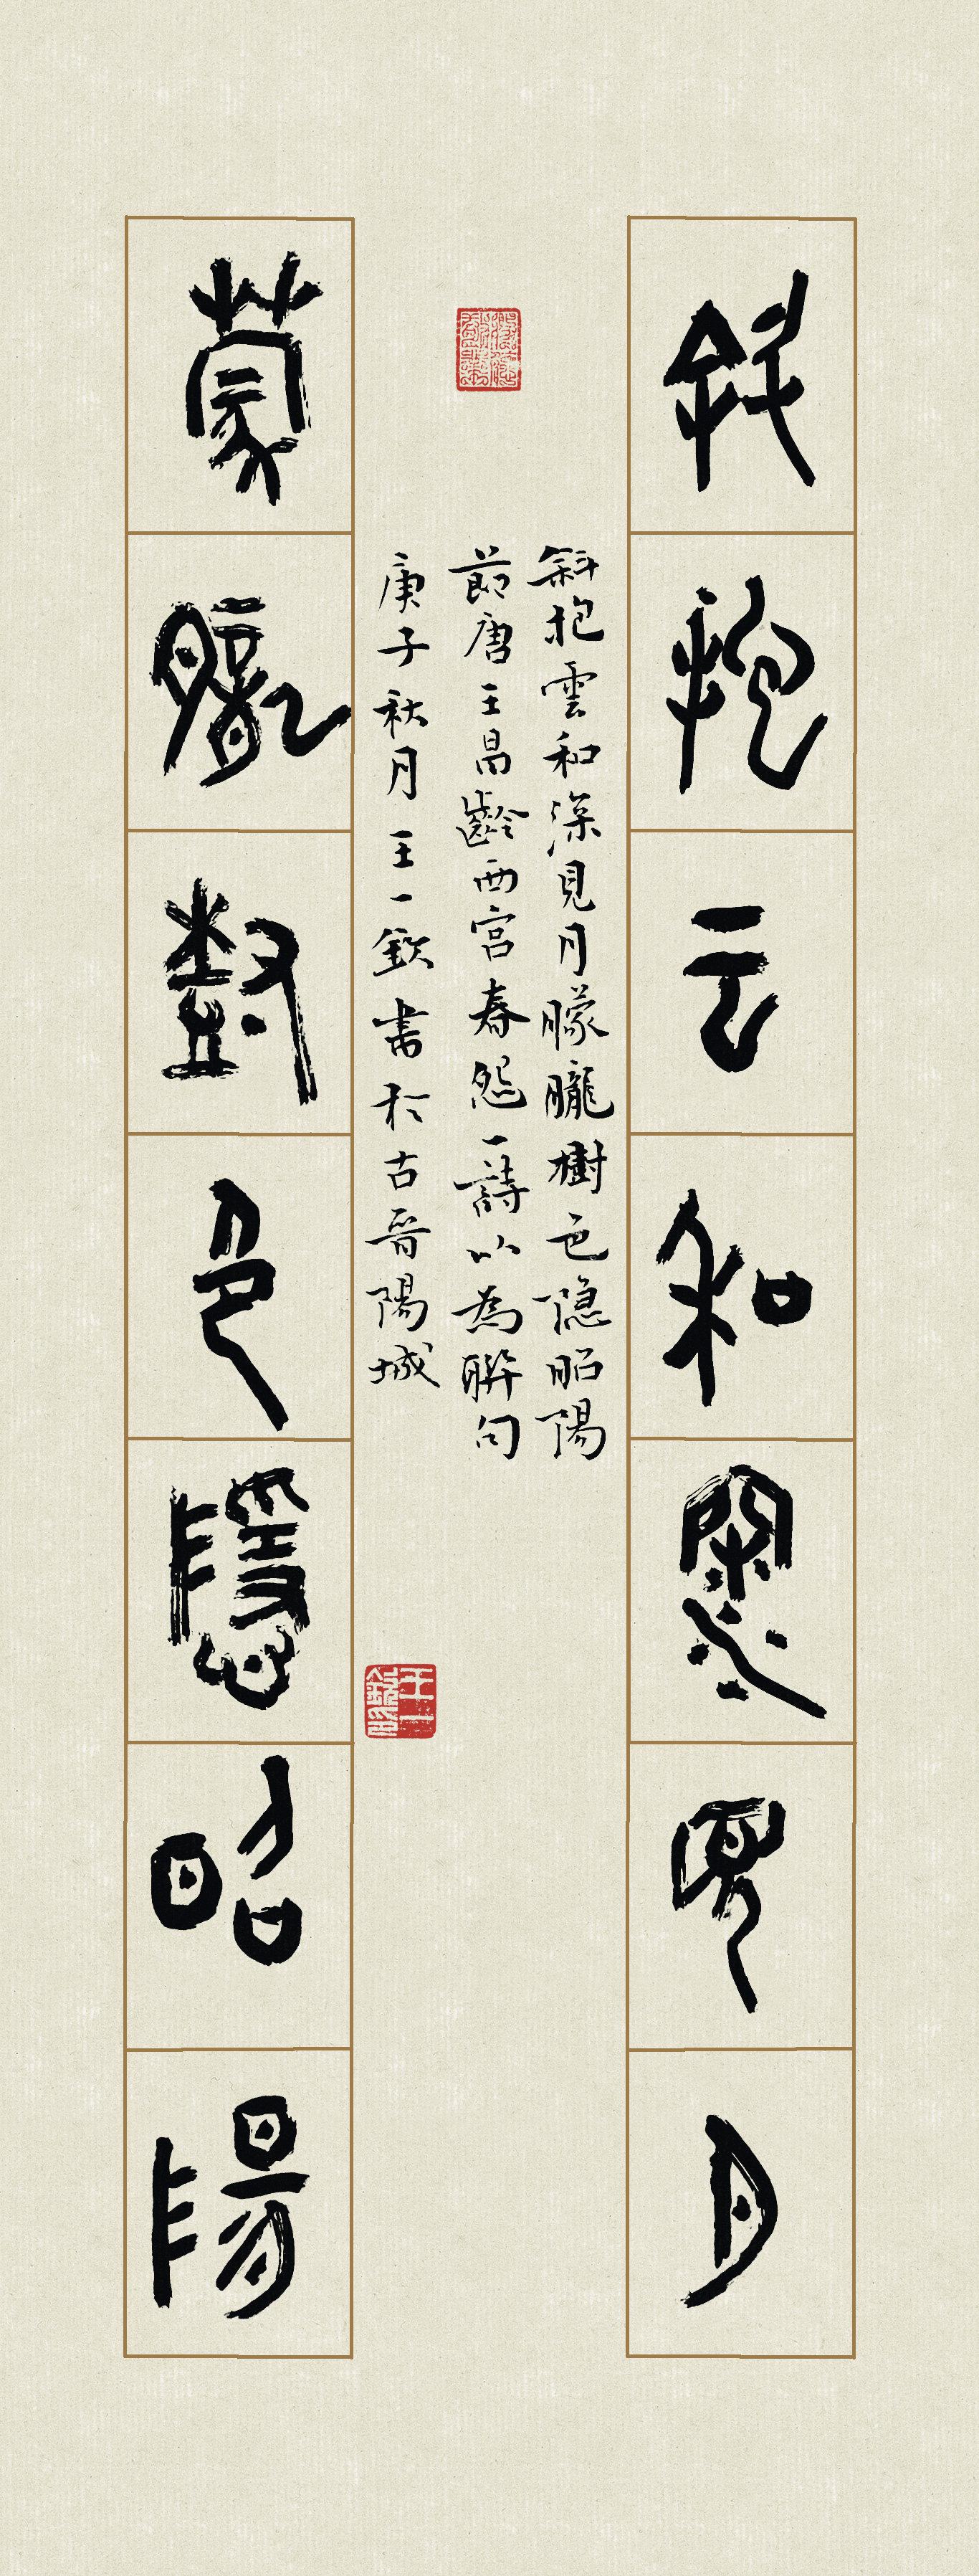 斜抱云和深見月
斜抱雲和深見月朦朧樹色隐昭陽
節唐王昌齡西宫春怨一詩以為聯句
庚子秋月王一欽書於古晉陽城
王一欽印
蒙朧對色隱昭陽